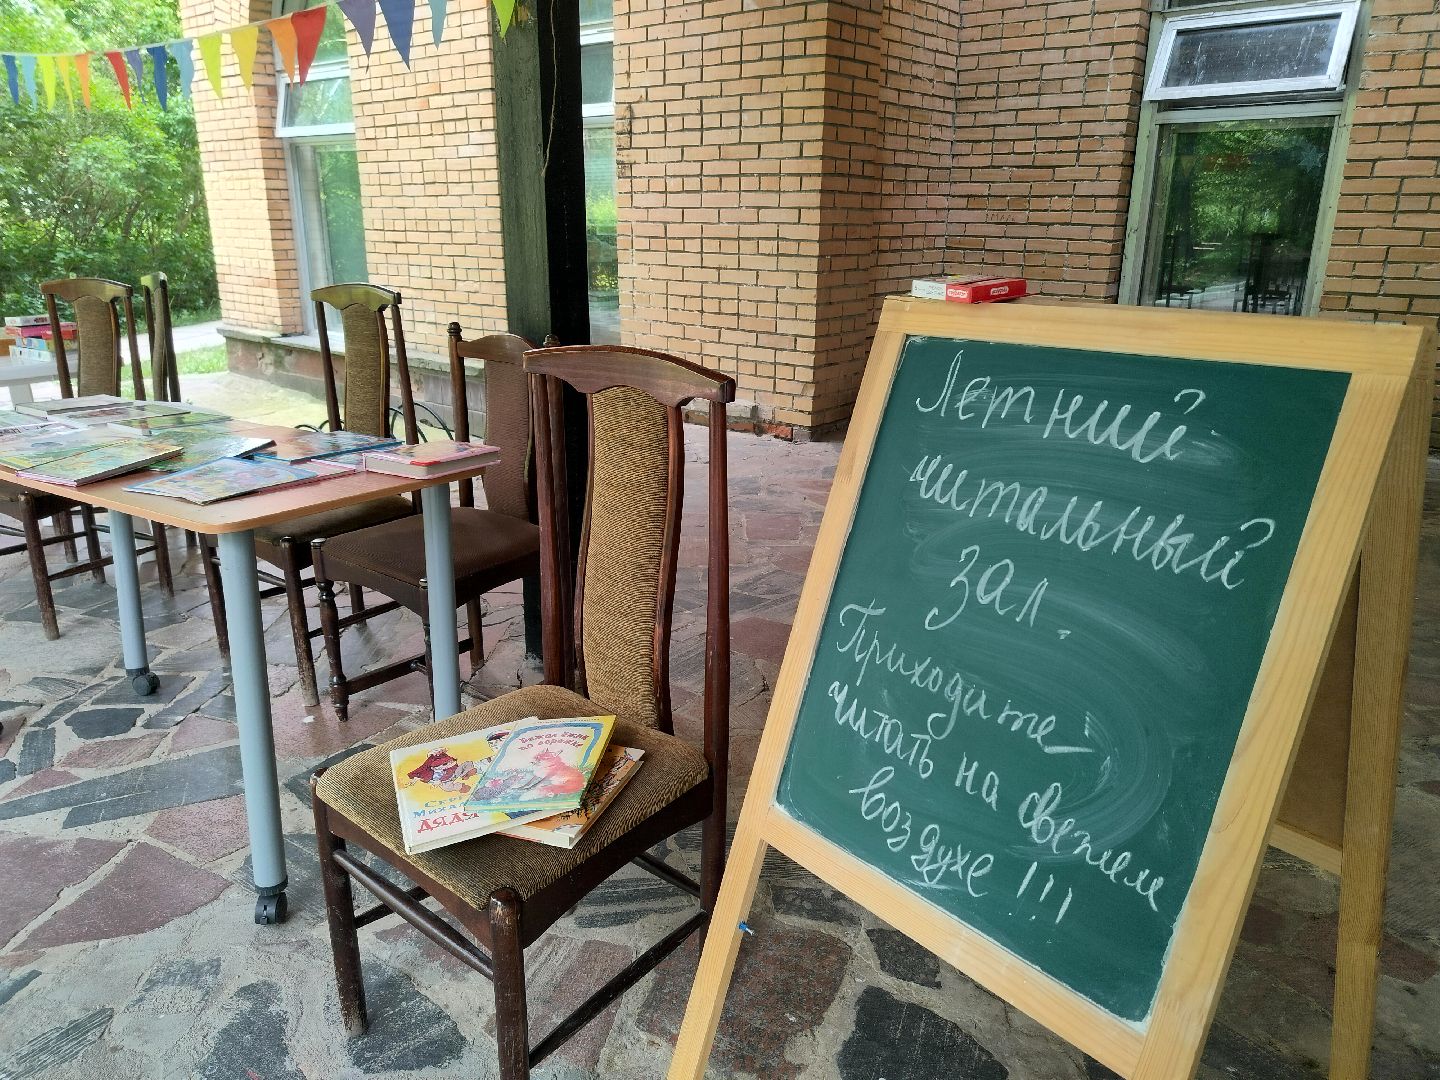 Летний
читальный
зал.
Приходите
читать на свежем
воздухе!!!
Бежал ёжик
по дорожке
ДЯДЯ